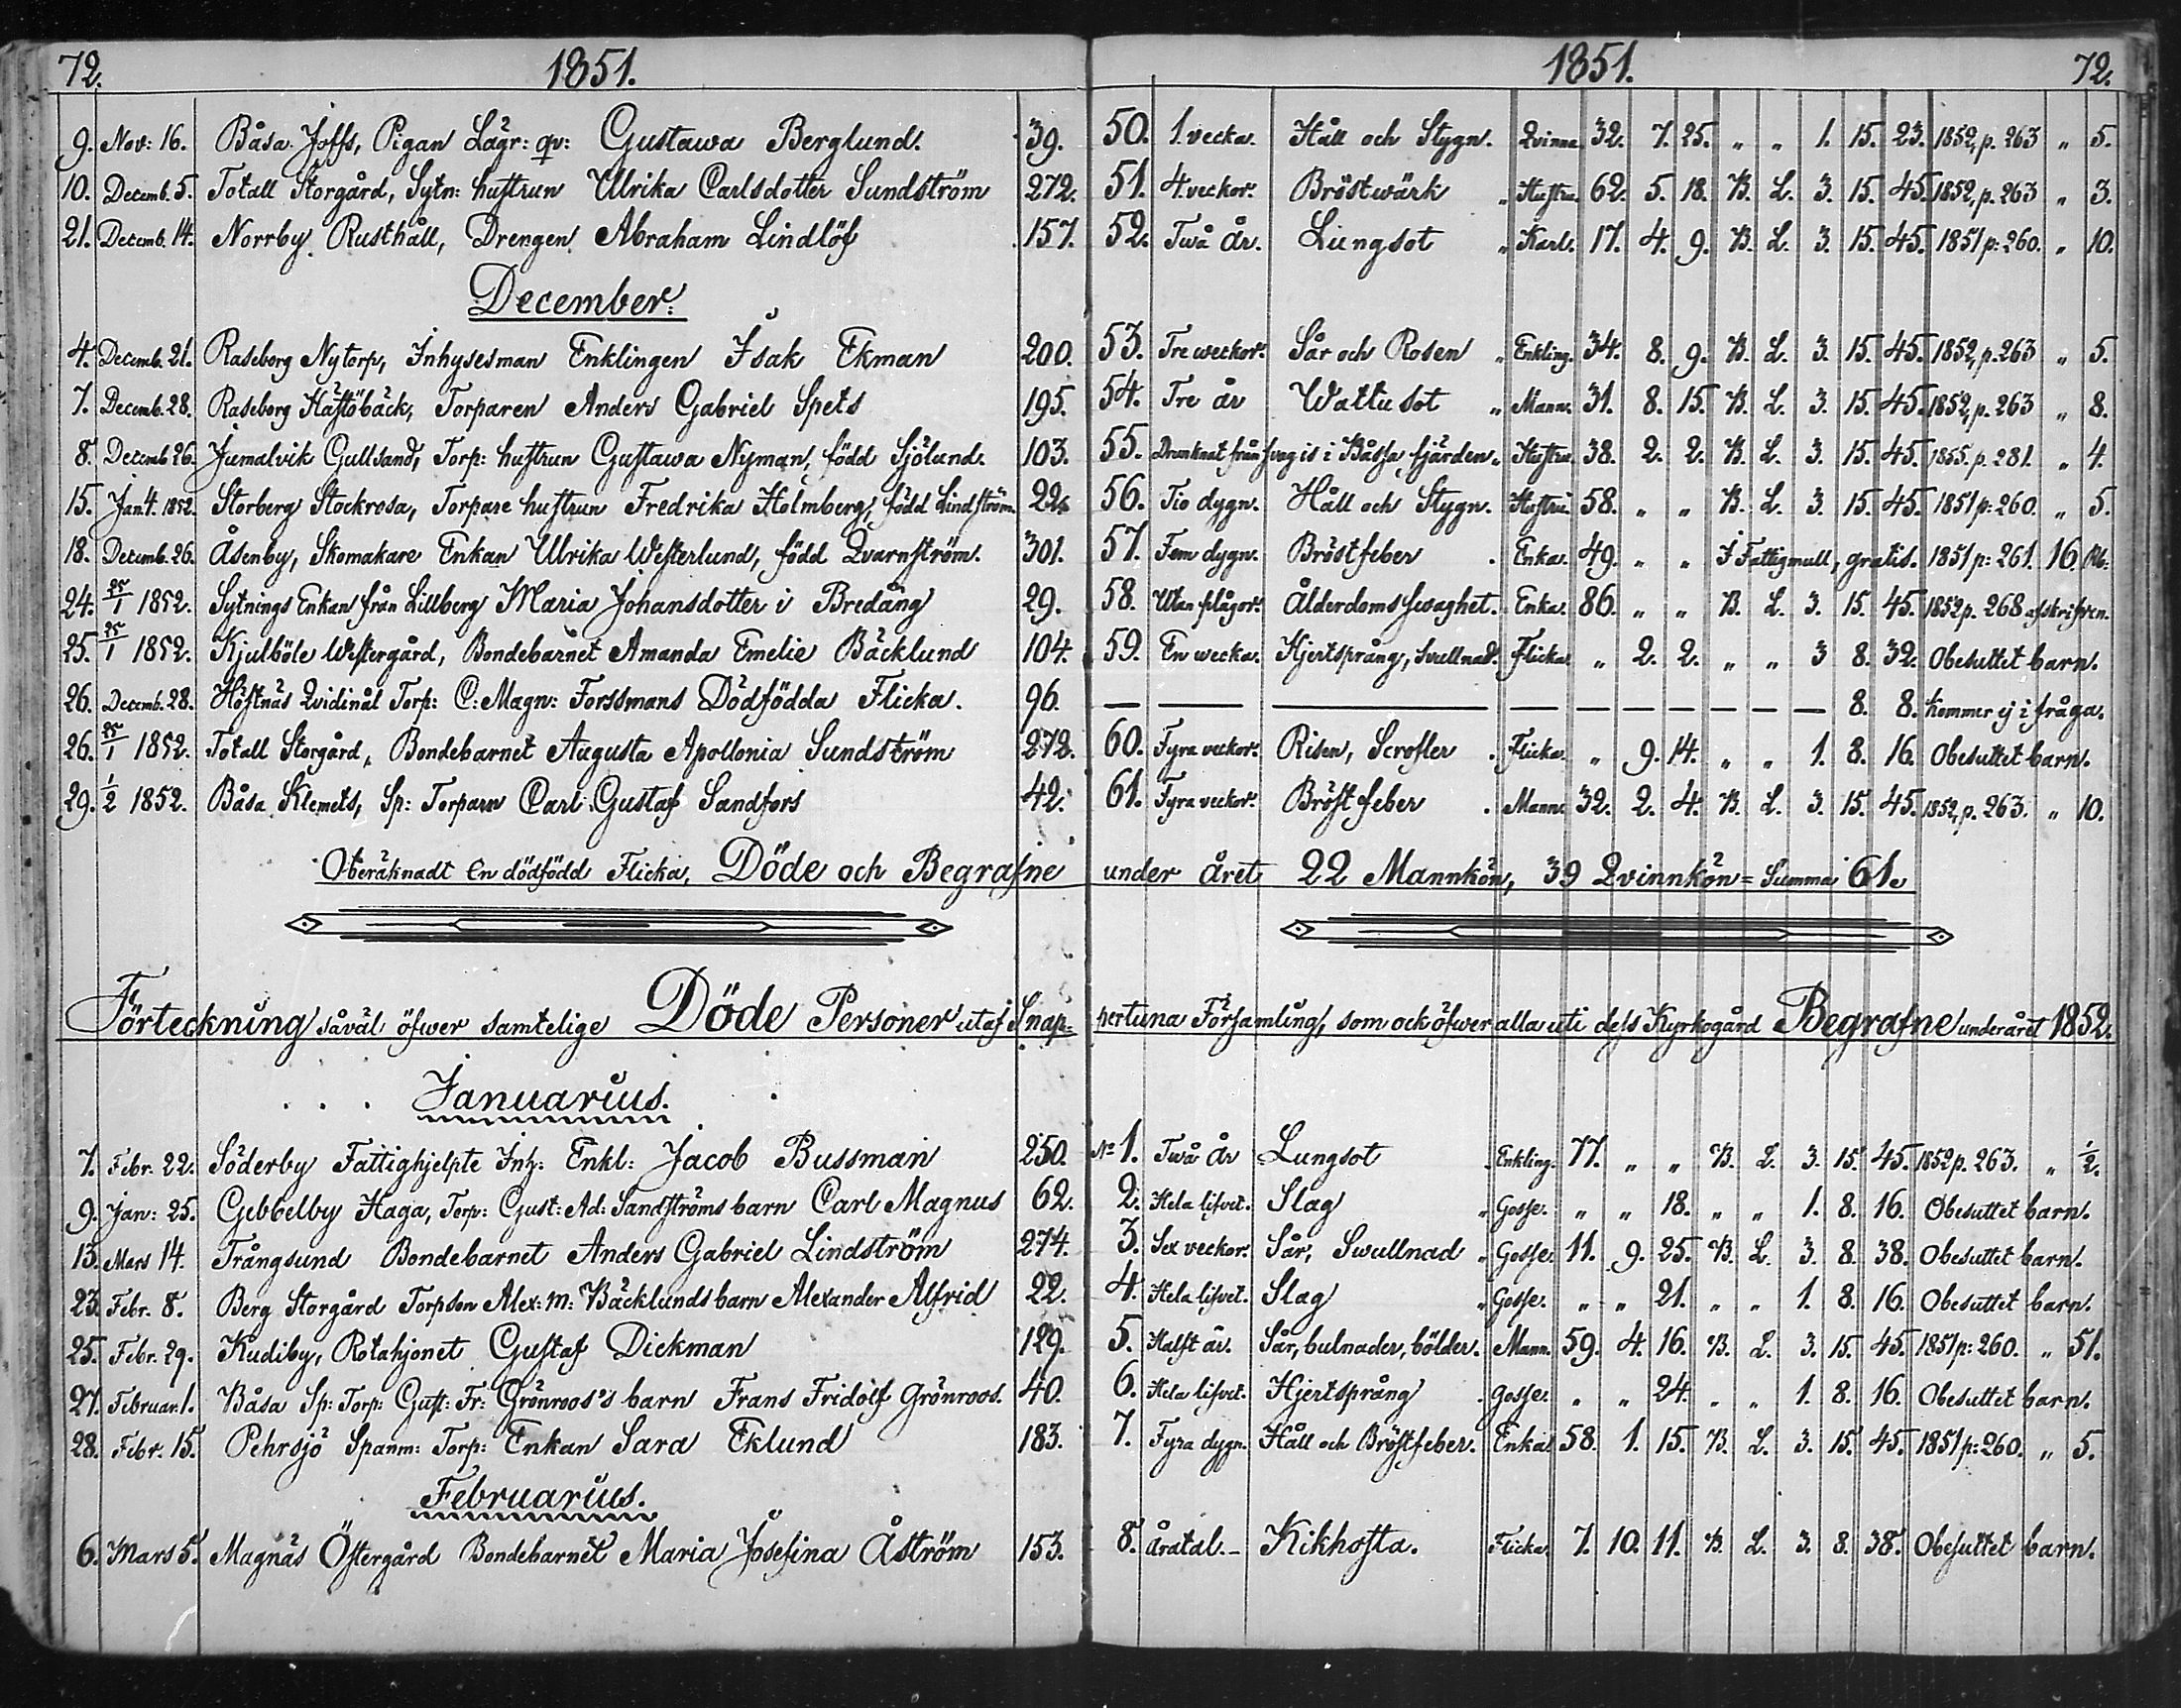 72. 1851. 1851. 72.
9. Nov: 16. Båsa Joffs, Pigan Lägr: qv: Gustawa Berglund. 39. 50. 1. vecka. Håll och Stygn. Qvinna. 32. 7. 25. „ „ 1. 15. 23. 1852, p. 263 „ 5.
10. Decemb. 5. Totall Storgård, Sytn: hustrun Ulrika Carlsdotter Sundström 272. 51. 4. veckor. Bröstwärk „ Hustru. 62. 5. 18. B. L. 3. 15. 45. 1852, p. 263 „ 3.
21. Decemb. 14. Norrby Rusthåll, Drengen Abraham Lindlöf 157. 52. Twå år. Lungsot „ Karl. 17. 4. 9. B. L. 3. 15. 45. 1851 p: 260. „ 10.
December.
4. Decemb. 21. Raseborg Nytorp, Inhysesman Enklingen Isak Ekman 200. 53. Tre weckor. Sår och Rosen „ Enkling. 34. 8. 9. B. L. 3. 15. 45. 1852, p. 263 „ 5.
7. Decemb. 28. Raseborg Hästöbäck, Torparen Anders Gabriel Spets 195. 54. Tre år Wattusot „ Mann. 31. 8. 15. B. L. 3. 15. 45. 1852, p. 263 „ 8.
8. Decemb 26. Jumalvik Gullsand, Torp: hustrun Gustawa Nyman, född Sjölund. 103. 55. Drunknat från svag is i Båssa fjärden „ Hustru. 38. 2. 2. B. L. 3. 15. 45. 1855. p. 281. „ 4.
15. Jan. 4. 1852. Storberg Stockrosa, Torpare hustrun Fredrika Holmberg, född Lindström. 22. 56. Tio dygn. Håll och Stygn. Hustru. 58. „ „ B. L. 3. 15. 45. 1851 p: 260. „ 5.
18. Decemb. 26. Åsenby, Skomakare Enkan Ulrika Westerlund, född Qvarnström. 301. 57. Fem dygn. Bröstfeber . Enka. 49. „ „ I Fattigmull, gratis. 1851 p: 261. 16. Rb:
24. 25/1 1852. Sytnings Enkan från Lillberg Maria Johansdotter i Bredäng 29. 58. Utan plågor. Ålderdoms swaghet. Enka. 86. „ „ B. L. 3. 15. 45. 1852 p. 268 afskrifven.
25. 25/1 1852. Kjulböle Westergård, Bondebarnet Amanda Emelie Bäcklund 104. 59. En wecka. Hjertsprång, Svullnad. Flicka. „ 2. 2. „ „ 3 8. 32. Obesuttet barn.
26. Decemb. 28. Höstnäs Qvidinål Torp: C: Magn: Forssmans Dödfödda Flicka. 96. — — — — — — — — — — 8. 8. Kommer ej i fråga.
26. 25/1 1852. Totall Storgård, Bondebarnet Augusta Apollonia Sundström 272. 60. Fyra veckor. Risen, Scrofler . Flicka. „ 9. 14. „ „ 1. 8. 16. Obesuttet barn.
29. 1/2 1852. Båsa Klemets, Sp: Torparn Carl Gustaf Sandfors 42. 61. Fyra veckor. Bröstfeber . Mann. 32. 2. 4. B. L. 3. 15. 45. 1852, p. 263. „ 10.
Oberäknadt en dödfödd Flicka, Döde och Begrafne under året 22 Mannkön, 39 Qvinnkön = Summa 61.
Förteckning såväl öfwer samtelige Döde Personer utaf Snap=pertuna Församling, som ock öfwer alla uti dess Kyrkogård Begrafne under året 1852.
Januarius.
7. Febr. 22. Söderby Fattighjelpte Inh: Enkl: Jacob Bussman 250. No 1. Twå år Lungsot . Enkling. 77. „ „ B. L. 3. 15. 45. 1852 p. 263. „ 1/2.
9. Jan: 25. Gebbelby Haga, Torp: Gust: Ad: Sandströms barn Carl Magnus 62. 2. Hela lifvet. Slag „ Gosse. „ „ 18. „ „ 1. 8. 16. Obesuttet barn.
13. Mars 14. Trångsund Bondebarnet Anders Gabriel Lindström 274. 3. Sex veckor. Sår, Swullnad „ Gosse. 11. 9. 25. B. L. 3. 8. 38. Obesuttet barn.
23. Febr. 8. Berg Storgård Torpson Alex: M: Bäcklunds barn Alexander Alfrid 22. 4. Hela lifvet. Slag „ Gosse. „ „ 21. „ „ 1. 8. 16. Obesuttet barn.
25. Febr. 29. Kudiby, Rotahjonet Gustaf Dickman 129. 5. Halft år. Sår, bulnader, bölder. Mann. 59. 4. 16. B. L. 3. 15. 45. 1851 p: 260. „ 51.
27. Februar. 1. Båsa Sp: Torp: Gust: Fr: Grönroos's barn Frans Fridolf Grönroos. 40. 6. Hela lifvet. Hjertsprång . Gosse. „ „ 24. „ „ 1. 8. 16. Obesuttet barn.
28. Febr. 15. Pehrsjö Spanm: Torp: Enkan Sara Eklund 183. 7. Fyra dygn. Håll och Bröstfeber. Enka. 58. 1. 15. B. L. 3. 15. 45. 1851 p: 260. „ 5.
Februarius.
6. Mars 5. Magnäs Östergård Bondebarnet Maria Josefina Åström 153. 8. åratal. – Kikhosta. Flicka. 7. 10. 11. B. L. 3. 8. 38. Obesuttet barn.